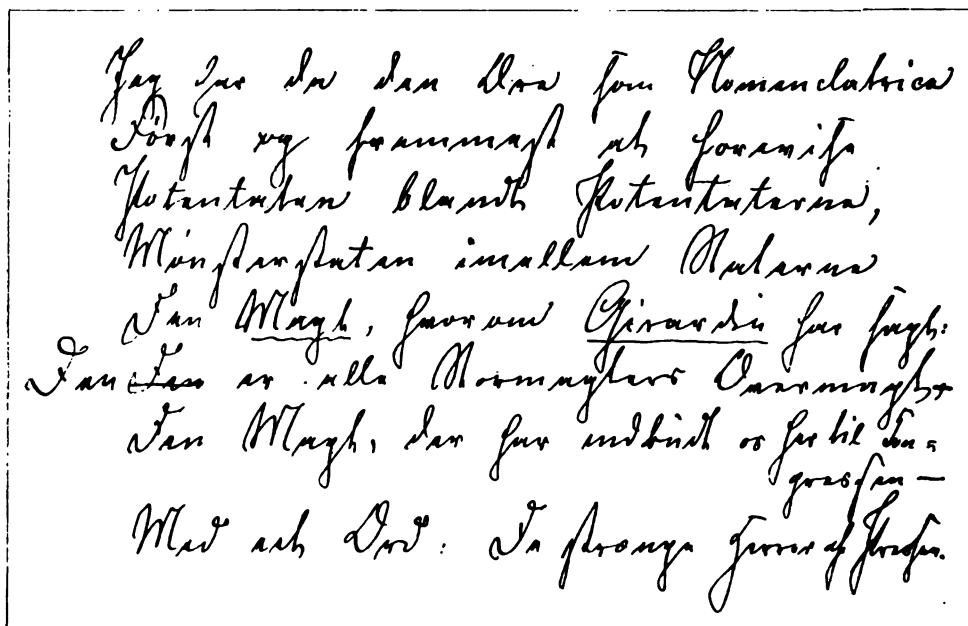 Jeg har da den Ære som Nomenclatrice
Först og fremmest at forevise
Potentaten blandt Potentaterne,
Mönsterstaten imellem Staterne
Den Magt, hvorom Girardin har sagt:
Den Den er alle Stormagters Overmagt,
Den Magt, der har indbudt os hertil Con=
gressen —
Med eet Ord: De strænge Herrer af Pressen.